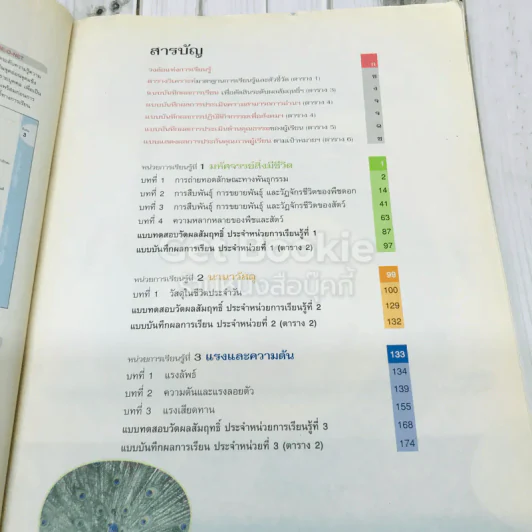 สารบัญ
ตารางวิเคราะห์มาตรฐานการเรียนรู้และตัวชี้วัด (ตาราง 1)
แบบบันทึกผลการเรียน เพื่อตัดสินระดับผลสัมฤทธิ์ฯ (ตาราง 3)
(ตาราง 4)
(ตาราง 4)
(ตาราง 5)
(ตาราง 6)
หน่วยการเรียนรู้ที่ 1 มหัศจรรย์สิ่งมีชีวิต 1
บทที่ 1 การถ่ายทอดลักษณะทางพันธุกรรม 2
บทที่ 2 การสืบพันธุ์ การขยายพันธุ์ และวัฏจักรชีวิตของพืชดอก 14
บทที่ 3 การสืบพันธุ์ การขยายพันธุ์ และวัฏจักรชีวิตของสัตว์ 41
บทที่ 4 ความหลากหลายของพืชและสัตว์ 63
แบบทดสอบวัดผลสัมฤทธิ์ ประจำหน่วยการเรียนรู้ที่ 1 87
แบบบันทึกผลการเรียน ประจำหน่วยที่ 1 (ตาราง 2) 97
Get Bookie
หน่วยการเรียนรู้ที่ 2 นานาวัสดุ 99
บทที่ 1 วัสดุในชีวิตประจำวัน 100
แบบทดสอบวัดผลสัมฤทธิ์ ประจำหน่วยการเรียนรู้ที่ 2 129
แบบบันทึกผลการเรียน ประจำหน่วยที่ 2 (ตาราง 2) 132
หน่วยการเรียนรู้ที่ 3 แรงและความดัน 133
บทที่ 1 แรงลัพธ์ 134
บทที่ 2 ความดันและแรงลอยตัว 139
บทที่ 3 แรงเสียดทาน 155
แบบทดสอบวัดผลสัมฤทธิ์ ประจำหน่วยการเรียนรู้ที่ 3 168
แบบบันทึกผลการเรียน ประจำหน่วยที่ 3 (ตาราง 2) 174